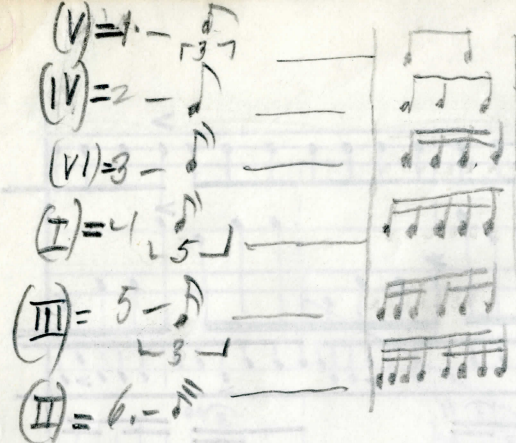 (V) = 1. -
3
(IV) = 2 -
(VI) = 3 -
(I) = 4
5
(III) = 5 -
3
(II) = 6. -